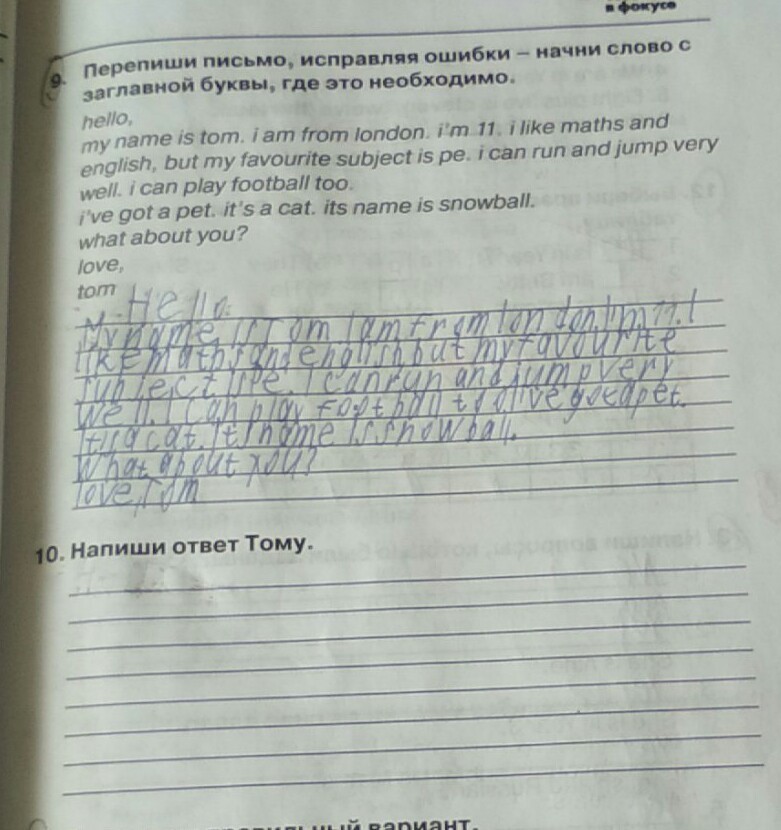 в фокусе
9. Перепиши письмо, исправляя ошибки – начни слово с
заглавной буквы, где это необходимо.
hello,
my name is tom. i am from london. i'm 11. i like maths and
english, but my favourite subject is pe. i can run and jump very
well. i can play football too.
i've got a pet. it's a cat. its name is snowball.
what about you?
love,
tom
Hello.
My name is Tom I am from london I'm 11. I
like maths and english but my favourite
subject is pe. I can run and jump very
well. I can play football too I've got a pet.
It's a cat. Its name is snowball.
What about you?
love, Tom
10. Напиши ответ Тому.
вариант.